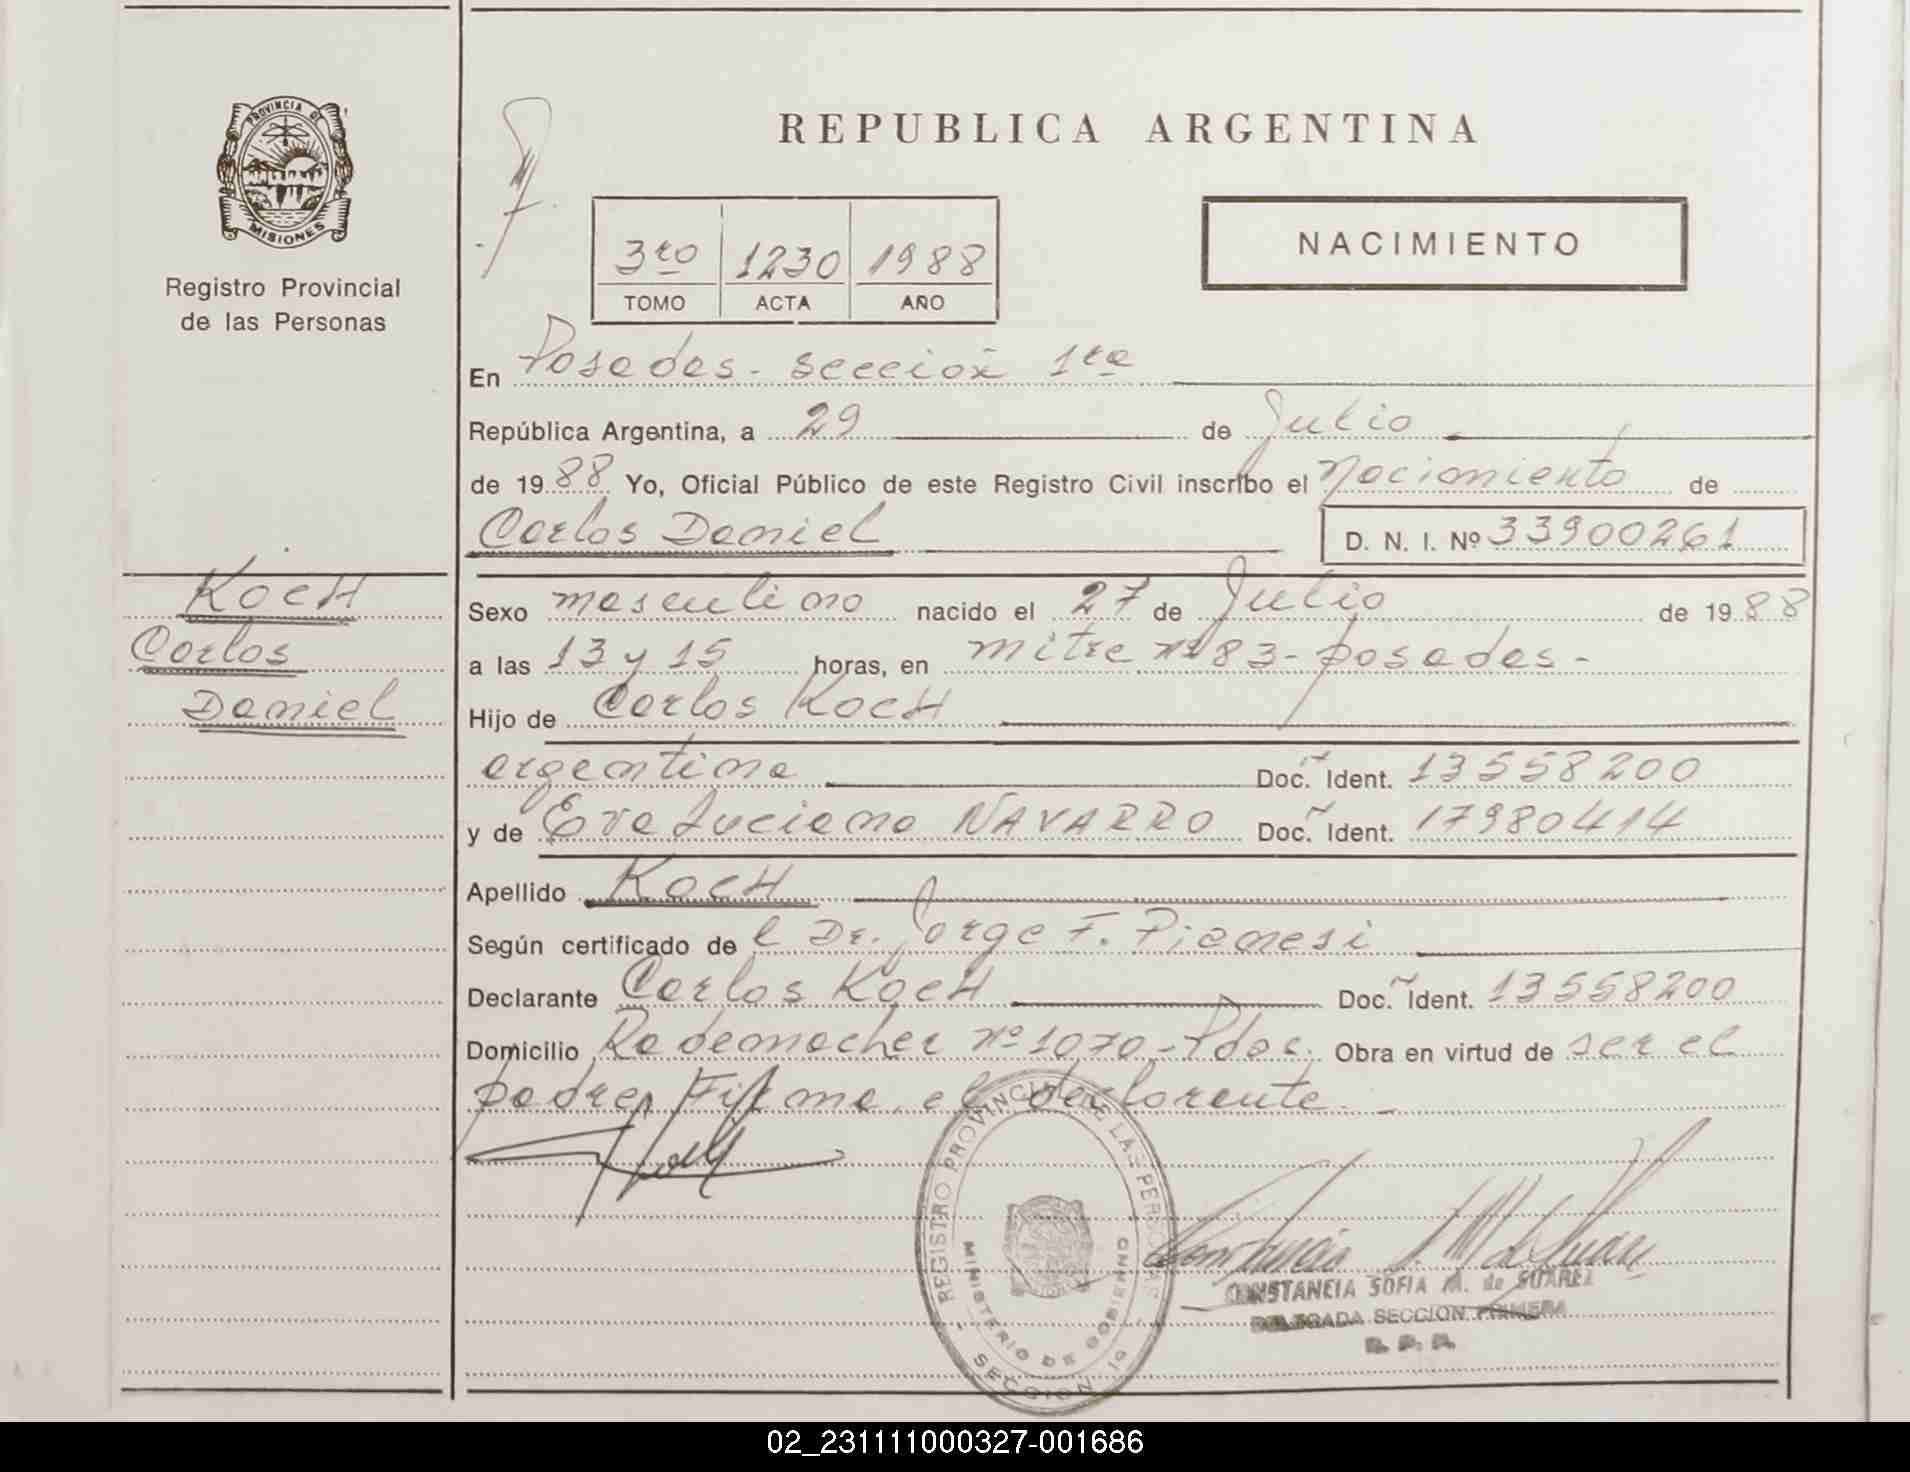 PROVINCIA DE
MISIONES
Registro Provincial
de las Personas
REPUBLICA ARGENTINA
NACIMIENTO
3ro 1230 1988
TOMO ACTA AÑO
En Posadas - sección 1ra
República Argentina, a 29 de Julio
de 1988 Yo, Oficial Público de este Registro Civil inscribo el Nacimiento de
Carlos Daniel D. N. I. Nº 33900261
Koch
Carlos
Daniel
Sexo masculino nacido el 27 de Julio de 1988
a las 13 y 15 horas, en mitre nº 83 - posadas -
Hijo de Carlos Koch
argentino Doc. Ident. 13558200
y de Eva Luciana NAVARRO Doc. Ident. 17980414
Apellido Koch
Según certificado de l Dr. Jorge F. Pianesi
Declarante Carlos Koch Doc. Ident. 13558200
Domicilio Rademacher nº 1070 - Pdas. Obra en virtud de ser el
padre, Firma el declarante. -
REGISTRO PROVINCIAL DE LAS PERSONAS
MINISTERIO DE GOBIERNO
- SECCION 1ª -
CONSTANCIA SOFIA M. de SUAREZ
DELEGADA SECCION PRIMERA
R. P. P.
02_231111000327-001686